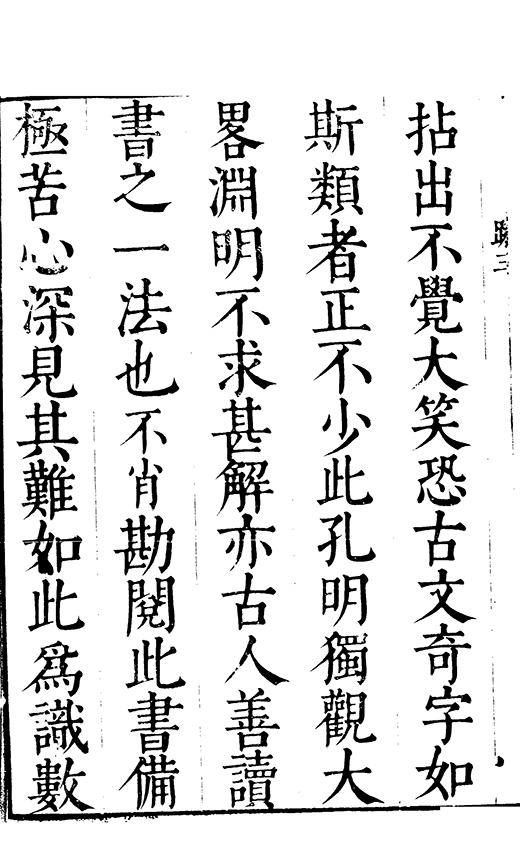 跋三
拈出不覺大笑恐古文奇字如
斯類者正不少此孔明獨觀大
畧淵明不求甚解亦古人善讀
書之一法也不肖勘閱此書備
極苦心深見其難如此爲識數